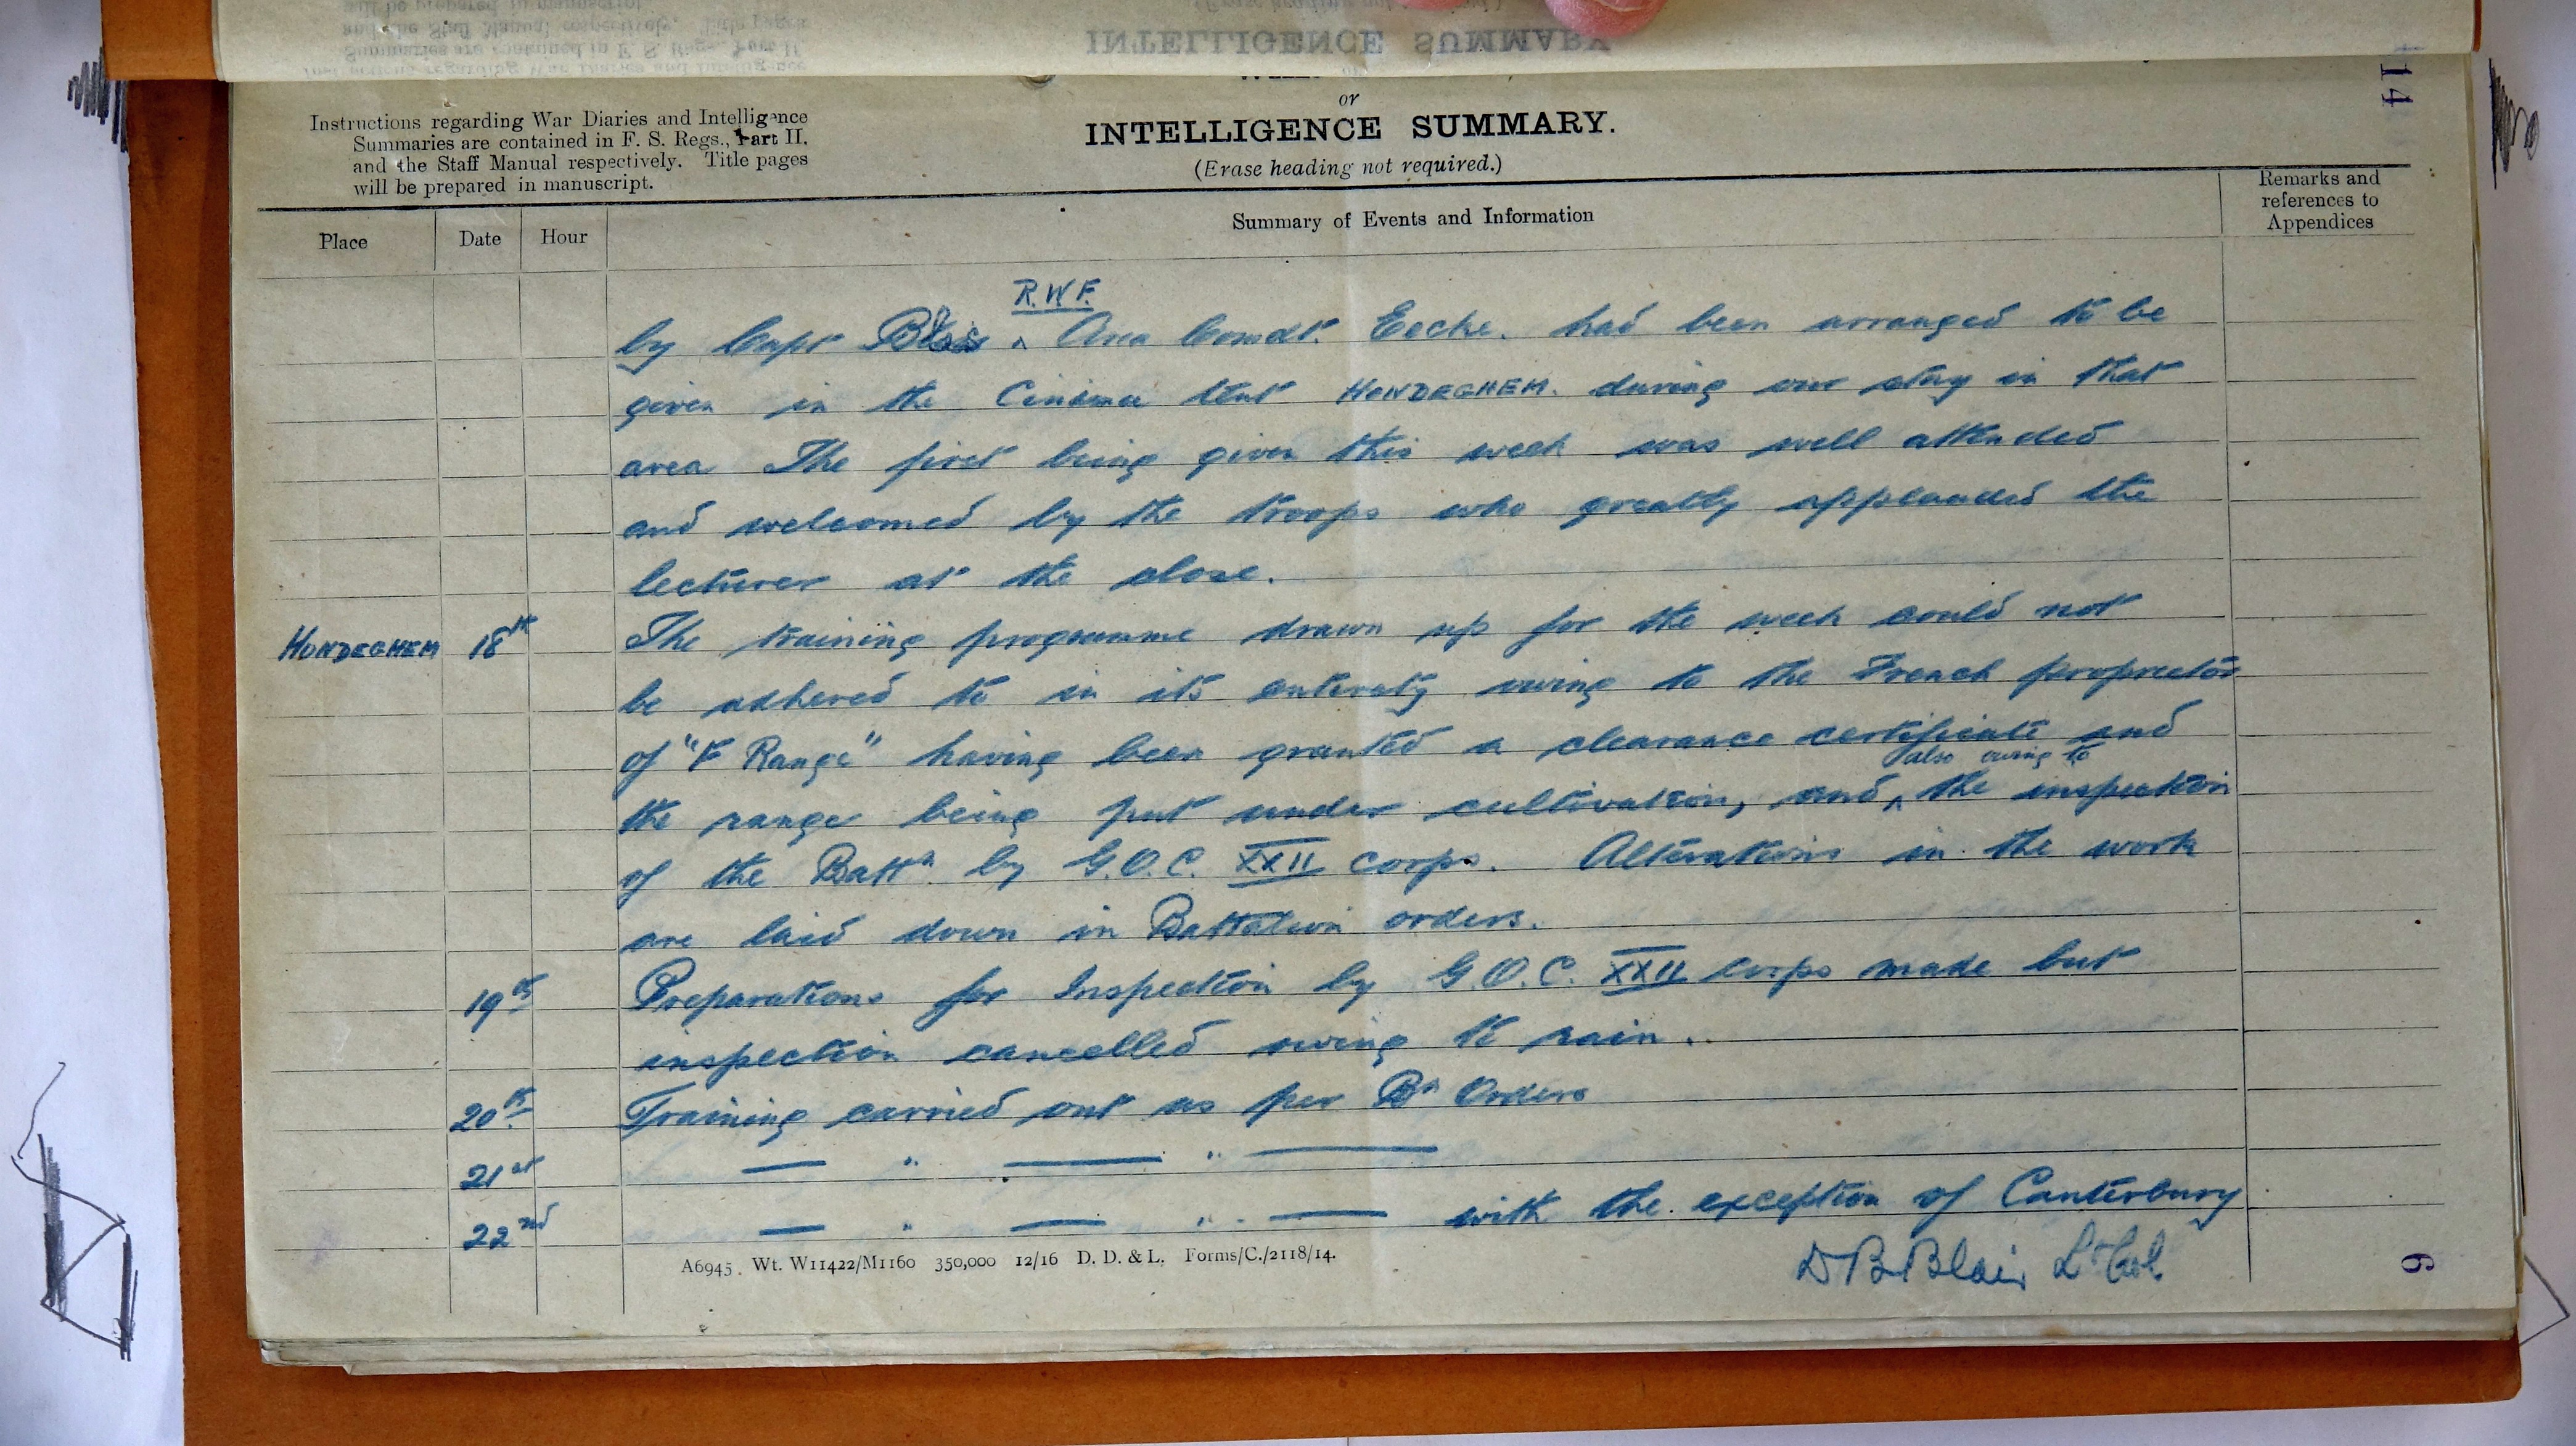 INTELLIGENCE SUMMARY
114
Instructions regarding War Diaries and Intelligence
Summaries are contained in F. S. Regs., Part II.
and the Staff Manual respectively. Title pages
will be prepared in manuscript.
or
INTELLIGENCE SUMMARY.
(Erase heading not required.)
Place
Date
Hour
Summary of Events and Information
Remarks and
references to
Appendices
R.W.F.
by Capt ^ Area Comdt. Eecke. had been arranged to be
given in the Cinema tent HONDEGHEM. during our stay in that
area The first being given this week was well attended
and welcomed by the troops who greatly applauded the
lecturer at the close.
HONDEGHEM 18th The training programme drawn up for the week could not
be adhered to in its enteraty owing to the French proprietor
of "F Range" having been granted a clearance certificate and
also owing to
the range being put under cultivation, and ^ the inspection
of the Battn. by G.O.C. XXII corps. Alterations in the work
are laid down in Battalion orders.
19th Preparations for Inspection by G.O.C. XXII corps made but
inspection cancelled owing to rain.
20th Training carried out as per Bn Orders
21st — " — " —
22nd — " — " — with the exception of Canterbury
D B Blair Lt Col
A6945. Wt. W11422/M1160 350,000 12/16 D. D. & L. Forms/C./2118/14.
6